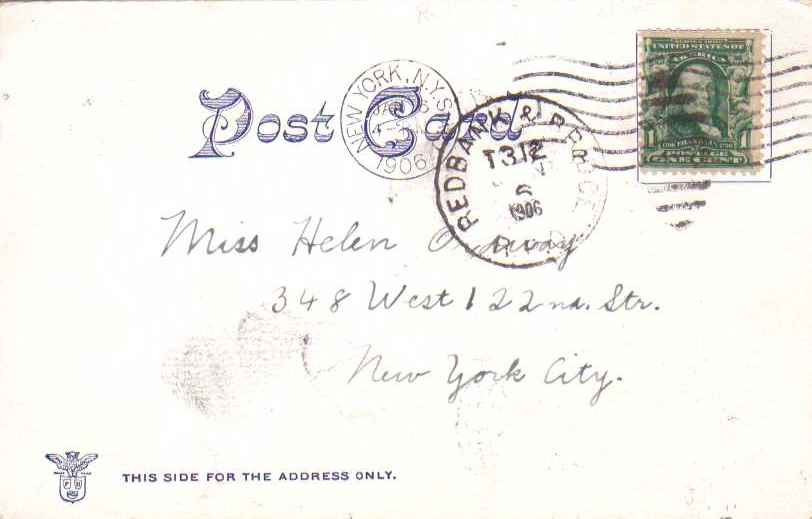 UNITED STATES OF
AMERICA
POSTAGE
ONE CENT
Post Card
NEW YORK, N.Y.
1906
REDBANK &
T312
6
1906
Miss Helen
348 West 122nd. Str.
New York City.
THIS SIDE FOR THE ADDRESS ONLY.